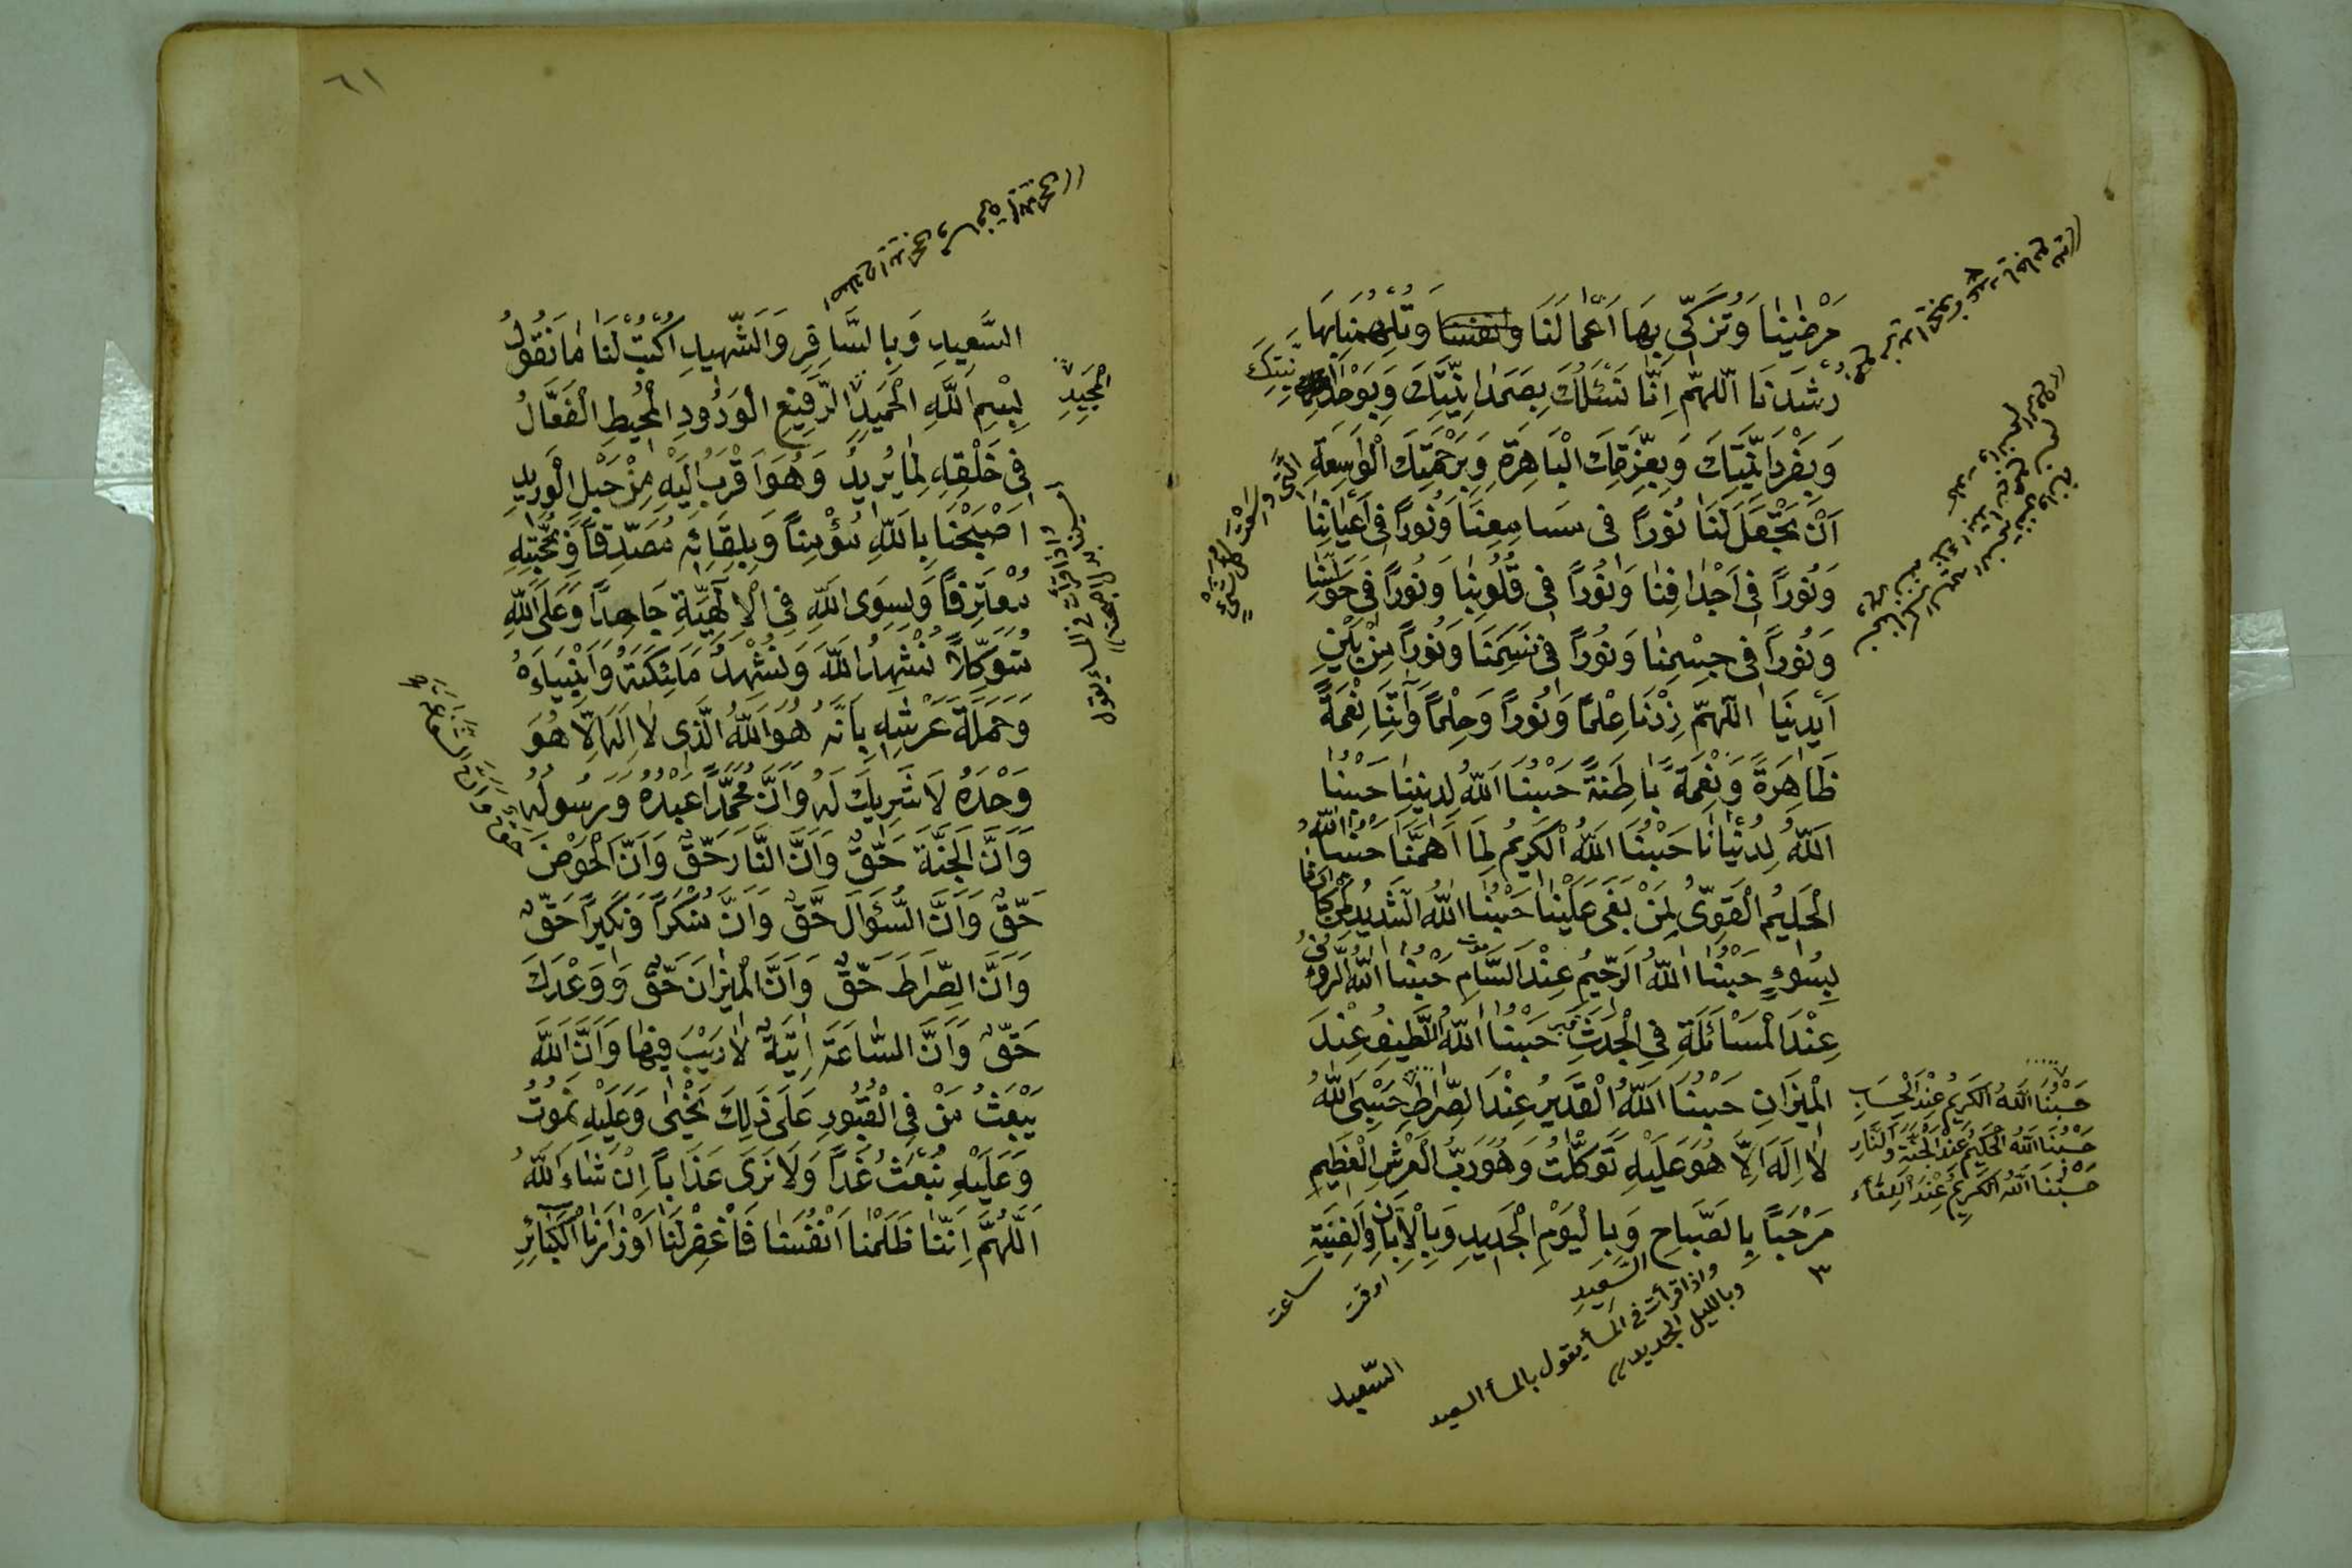 مَرْضٰينَا وَتُزَكِّي بِهَا اَعْمَالَنَا وَتُلْهِمُنَا بِهَا
رُشْدَنَا اَللّٰهُمَّ اِنَّا نَسْئَلُكَ بِصَمَدَانِيَّتِكَ وَبِوَحْدَا
نِيَّتِكَ
وَبِفَرْدَانِيَّتِكَ وَبِعِزَّتِكَ الْبَاهِرَةِ وَبِرَحْمَتِكَ الْوَاسِعَةِ
اَنْ تَجْعَلَ لَنَا نُورًا فِى مَسَامِعِنَا وَنُورًا فِى اَعْيَانِنَا
وَنُورًا فِى اَجْدَافِنَا وَنُورًا فِى قُلُوبِنَا وَنُورًا فِى حَوَاسِّنَا
وَنُورًا فِى جِسْمِنَا وَنُورًا فِى نَسَمِنَا وَنُورًا مِنْ بَيْنِ
اَيْدِينَا اَللّٰهُمَّ زِدْنَا عِلْمًا وَنُورًا وَحِلْمًا وَآتِنَا نِعْمَةً
ظَاهِرَةً وَنِعْمَةً بَاطِنَةً حَسْبُنَا اَللّٰهُ لِدِينِنَا حَسْبُنَا
اَللّٰهُ لِدُنْيَانَا حَسْبُنَا اَللّٰهُ الْكَرِيمُ لِمَا اَهَمَّنَا حَسْبُنَا اللّٰهُ
الْحَلِيمُ الْقَوِىُّ لِمَنْ بَغَى عَلَيْنَا حَسْبُنَا اللّٰهُ الشَّدِيدُ لِمَنْ كَادَنَا
بِسُوءٍ حَسْبُنَا اللّٰهُ الرَّحِيمُ عِنْدَ السَّامِ حَسْبُنَا اللّٰهُ الرَّؤُفُ
عِنْدَ الْمَسْأَئَلَةِ فِى الْجَدَثِ حَسْبُنَا اَللّٰهُ اللَّطِيفُ عِنْدَ
الْمِيزَانِ حَسْبُنَا اَللّٰهُ الْقَدِيرُ عِنْدَ الصِّرَاطِ حَسْبِىَ اللّٰهُ
لَا اِلَهَ اِلَّا هُوَ عَلَيْهِ تَوَكَّلْتُ وَهُوَ رَبُّ الْعَرْشِ الْعَظِيمِ
مَرْحَبًا بِالصَّبَاحِ وَبِالْيَوْمِ الْجَدِيدِ وَبِالْاِبَّانِ وَالْفِينَةِ
السَّعِيدِ
حَسْبُنَا اَللّٰهُ الْكَرِيمُ عِنْدَ الْحِسَابِ
حَسْبُنَا اَللّٰهُ الْحَكِيمُ عِنْدَ الْجَنَّةِ وَالنَّارِ
حَسْبُنَا اَللّٰهُ الْكَرِيمُ عِنْدَ اللِّقَاءِ
الَّتِى وَسِعَتْ كُلَّ شَىْءٍ
واذا قرأت فى المسأ يقول بالمسأ السعيد
وبالليل الجديد
وقت
ساعت
٣
السّعيد
٦١
السَّعِيدِ وَبِالسَّافِرِ وَالشَّهِيدِ اُكْتُبْ لَنَا مَا نَقُولُ
بِسْمِ اللّٰهِ الْحَمِيدِ الرَّفِيعِ الْوَدُودِ الْمُحِيطِ الْفَعَّالُ
الْمَجِيدِ
فِى خَلْقِهِ لِمَا يُرِيدُ وَهُوَ اَقْرَبُ اِلَيْهِ مِنْ حَبْلِ الْوَرِيدِ
اَصْبَحْنَا بِاللّٰهِ مُؤْمِنًا وَبِلِقَائِهِ مُصَدِّقًا وَبِحُجَّتِهِ
مُعْتَرِفًا وَلِسِوَى اللّٰهِ فِى الْاِلَهِيَّةِ جَاحِدًا وَعَلَى اللّٰهِ
مُتَوَكِّلًا نُشْهِدُ اللّٰهَ وَنُشْهِدُ مَلٰئِكَتَهُ وَاَنْبِيَاءَهُ
وَحَمَلَةَ عَرْشِهِ بِاَنَّهُ هُوَ اللّٰهُ الَّذِى لَا اِلَهَ اِلَّا هُوَ
وَحْدَهُ لَا شَرِيكَ لَهُ وَاَنَّ مُحَمَّدًا عَبْدُهُ وَرَسُولُهُ
وَاَنَّ الْجَنَّةَ حَقٌّ وَاَنَّ النَّارَ حَقٌّ وَاَنَّ الْحَوْضَ
حَقٌّ وَاَنَّ السُّؤَالَ حَقٌّ وَاَنَّ مُنْكَرًا وَنَكِيرًا حَقٌّ
وَاَنَّ الصِّرَاطَ حَقٌّ وَاَنَّ الْمِيزَانَ حَقٌّ وَوَعْدَكَ
حَقٌّ وَاَنَّ السَّاعَةَ اٰتِيَةٌ لَا رَيْبَ فِيهَا وَاَنَّ اللّٰهَ
يَبْعَثُ مَنْ فِى الْقُبُورِ عَلَى ذٰلِكَ نَحْيٰى وَعَلَيْهِ نَمُوتُ
وَعَلَيْهِ نُبْعَثُ غَدًا وَلَا نَرَى عَذَابًا اِنْ شَاءَ اللّٰهُ
اَللّٰهُمَّ اِنَّنَا ظَلَمْنَا اَنْفُسَنَا فَاغْفِرْ لَنَا اَوْزَارَنَا الْكَبَائِرَ
واذا قرأت فى المسأ يقول
امسينا بدل اصبحنا